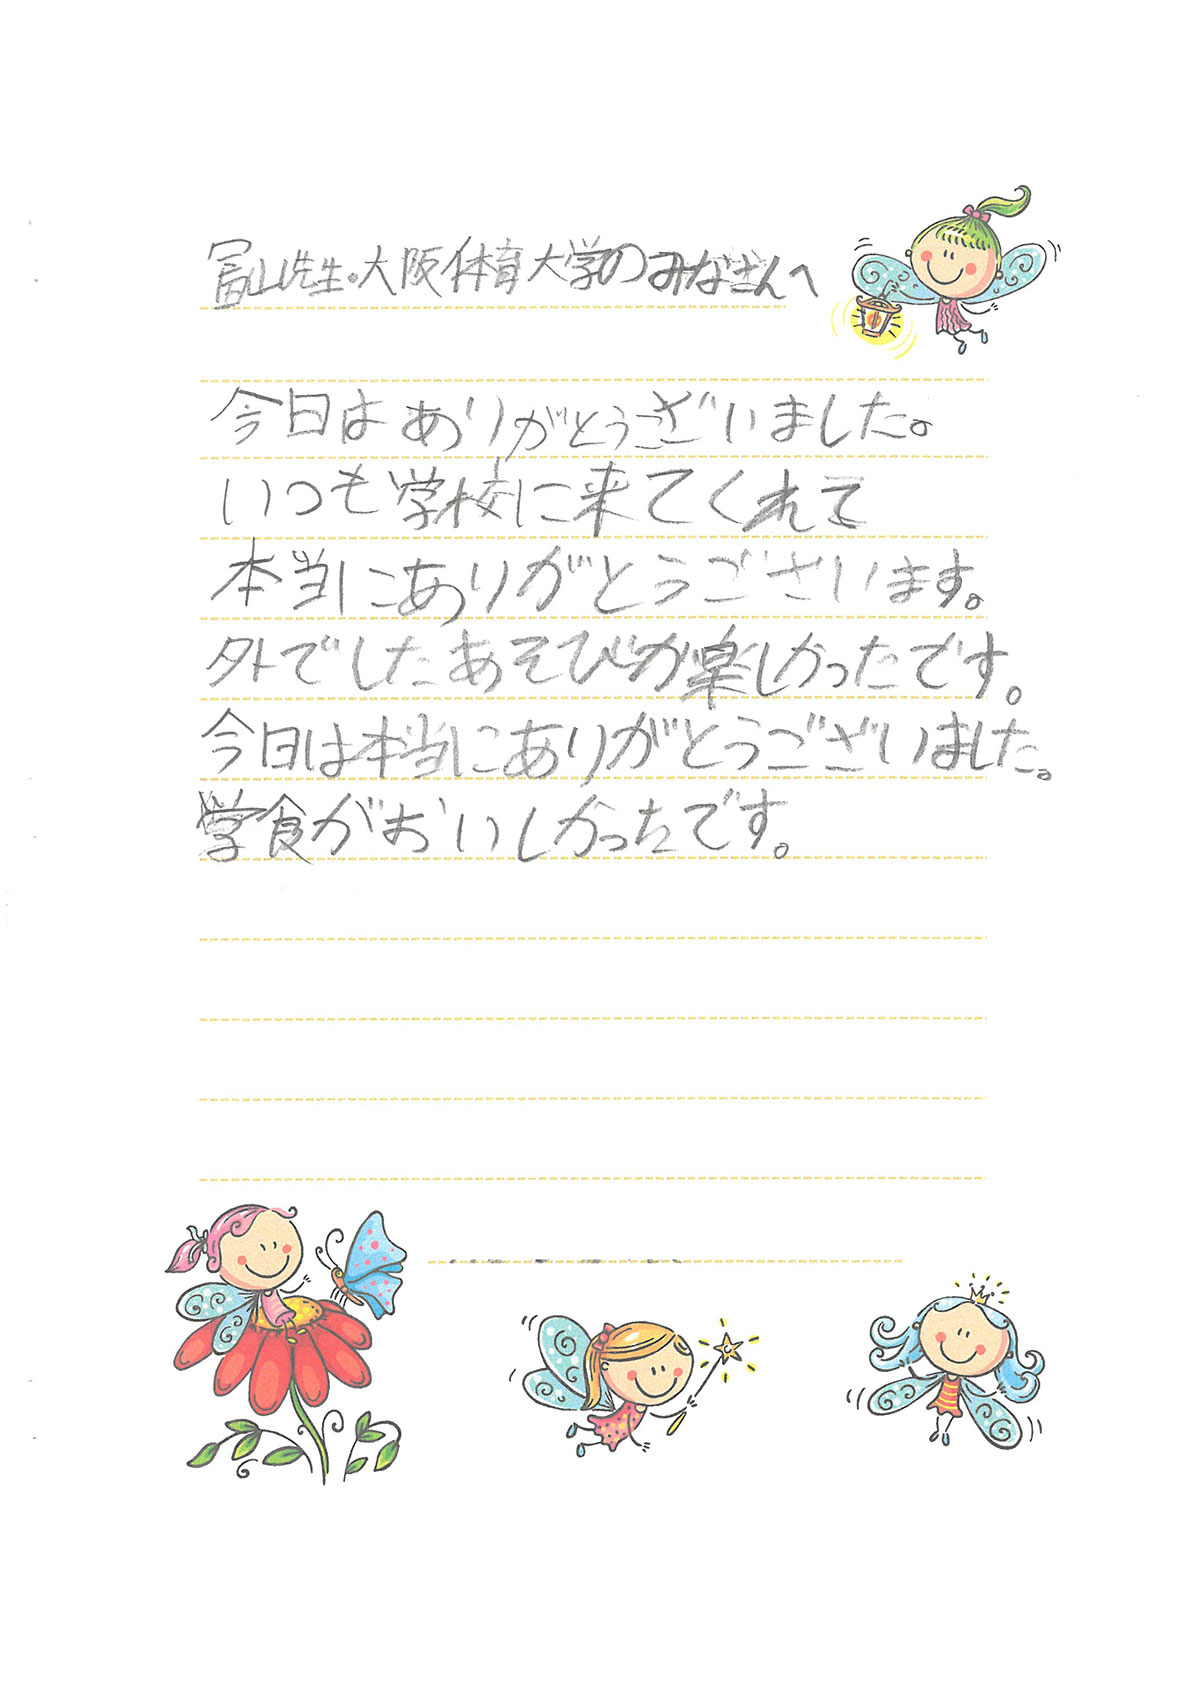 冨山先生。大阪体育大学のみなさんへ
今日はありがとうございました。
いつも学校に来てくれて
本当にありがとうございます。
外でしたあそびが楽しかったです。
今日は本当にありがとうございました。
学食がおいしかったです。